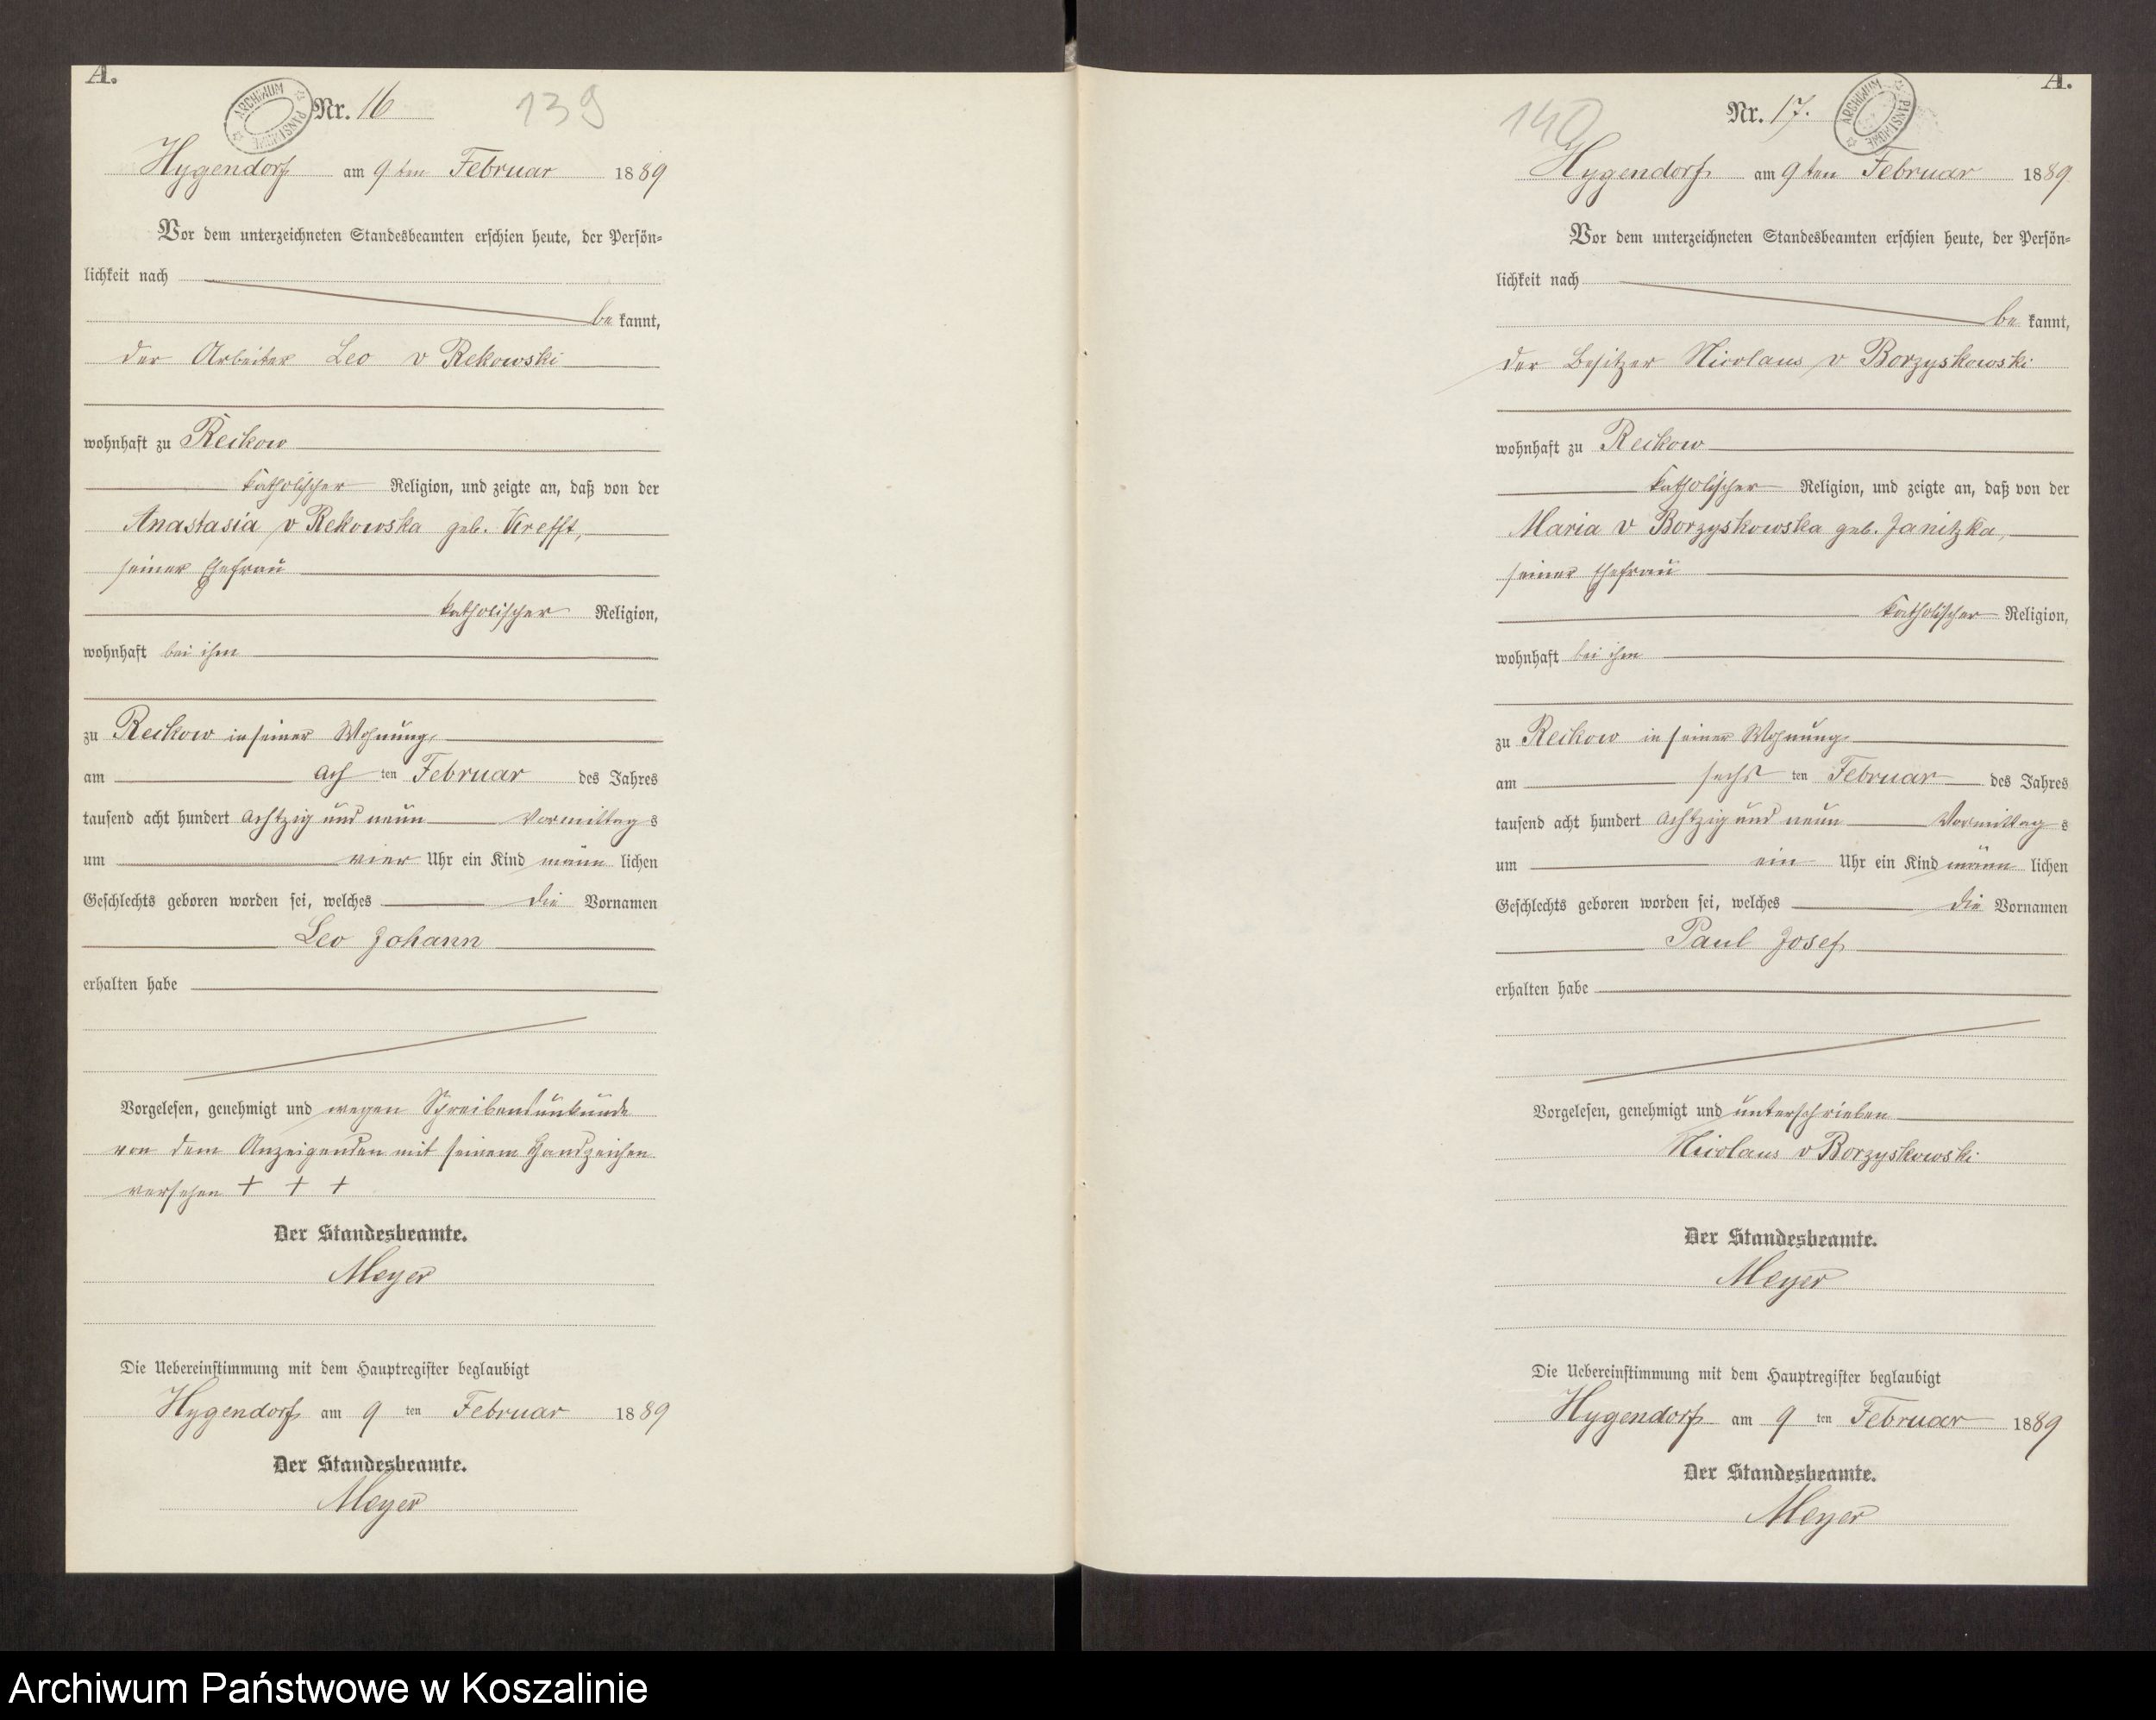 A.
ARCHIWUM PAŃSTWOWE
Nr. 16
139
Hygendorf am 9ten Februar 1889
Vor dem unterzeichneten Standesbeamten erschien heute, der Persön-
lichkeit nach
be kannt,
der Arbeiter Leo v Rekowski
wohnhaft zu Reckow
katholischer Religion, und zeigte an, daß von der
Anastasia v Rekowska geb. Krefft,
seiner Ehefrau
katholischer Religion,
wohnhaft bei ihm
zu Reckow in seiner Wohnung,
am ach ten Februar des Jahres
tausend acht hundert achtzig und neun Vormittag s
um vier Uhr ein Kind männ lichen
Geschlechts geboren worden sei, welches die Vornamen
Leo Johann
erhalten habe
Vorgelesen, genehmigt und wegen Schreibensunkunde
von dem Anzeigenden mit seinem Handzeichen
versehen + + +
Der Standesbeamte.
Meyer
Die Uebereinstimmung mit dem Hauptregister beglaubigt
Hygendorf am 9 ten Februar 1889
Der Standesbeamte.
Meyer
A.
140
Nr. 17.
ARCHIWUM PAŃSTWOWE
Hygendorf am 9ten Februar 1889
Vor dem unterzeichneten Standesbeamten erschien heute, der Persön-
lichkeit nach
be kannt,
der Besitzer Nicolaus v Borzyskowski
wohnhaft zu Reckow
katholischer Religion, und zeigte an, daß von der
Maria v Borzyskowska geb. Janitzka,
seiner Ehefrau
katholischer Religion,
wohnhaft bei ihm
zu Reckow in seiner Wohnung
am sechs ten Februar des Jahres
tausend acht hundert achtzig und neun Vormittag s
um ein Uhr ein Kind männ lichen
Geschlechts geboren worden sei, welches die Vornamen
Paul Josef
erhalten habe
Vorgelesen, genehmigt und unterschrieben
Nicolaus v Borzyskowski
Der Standesbeamte.
Meyer
Die Uebereinstimmung mit dem Hauptregister beglaubigt
Hygendorf am 9 ten Februar 1889
Der Standesbeamte.
Meyer
Archiwum Państwowe w Koszalinie